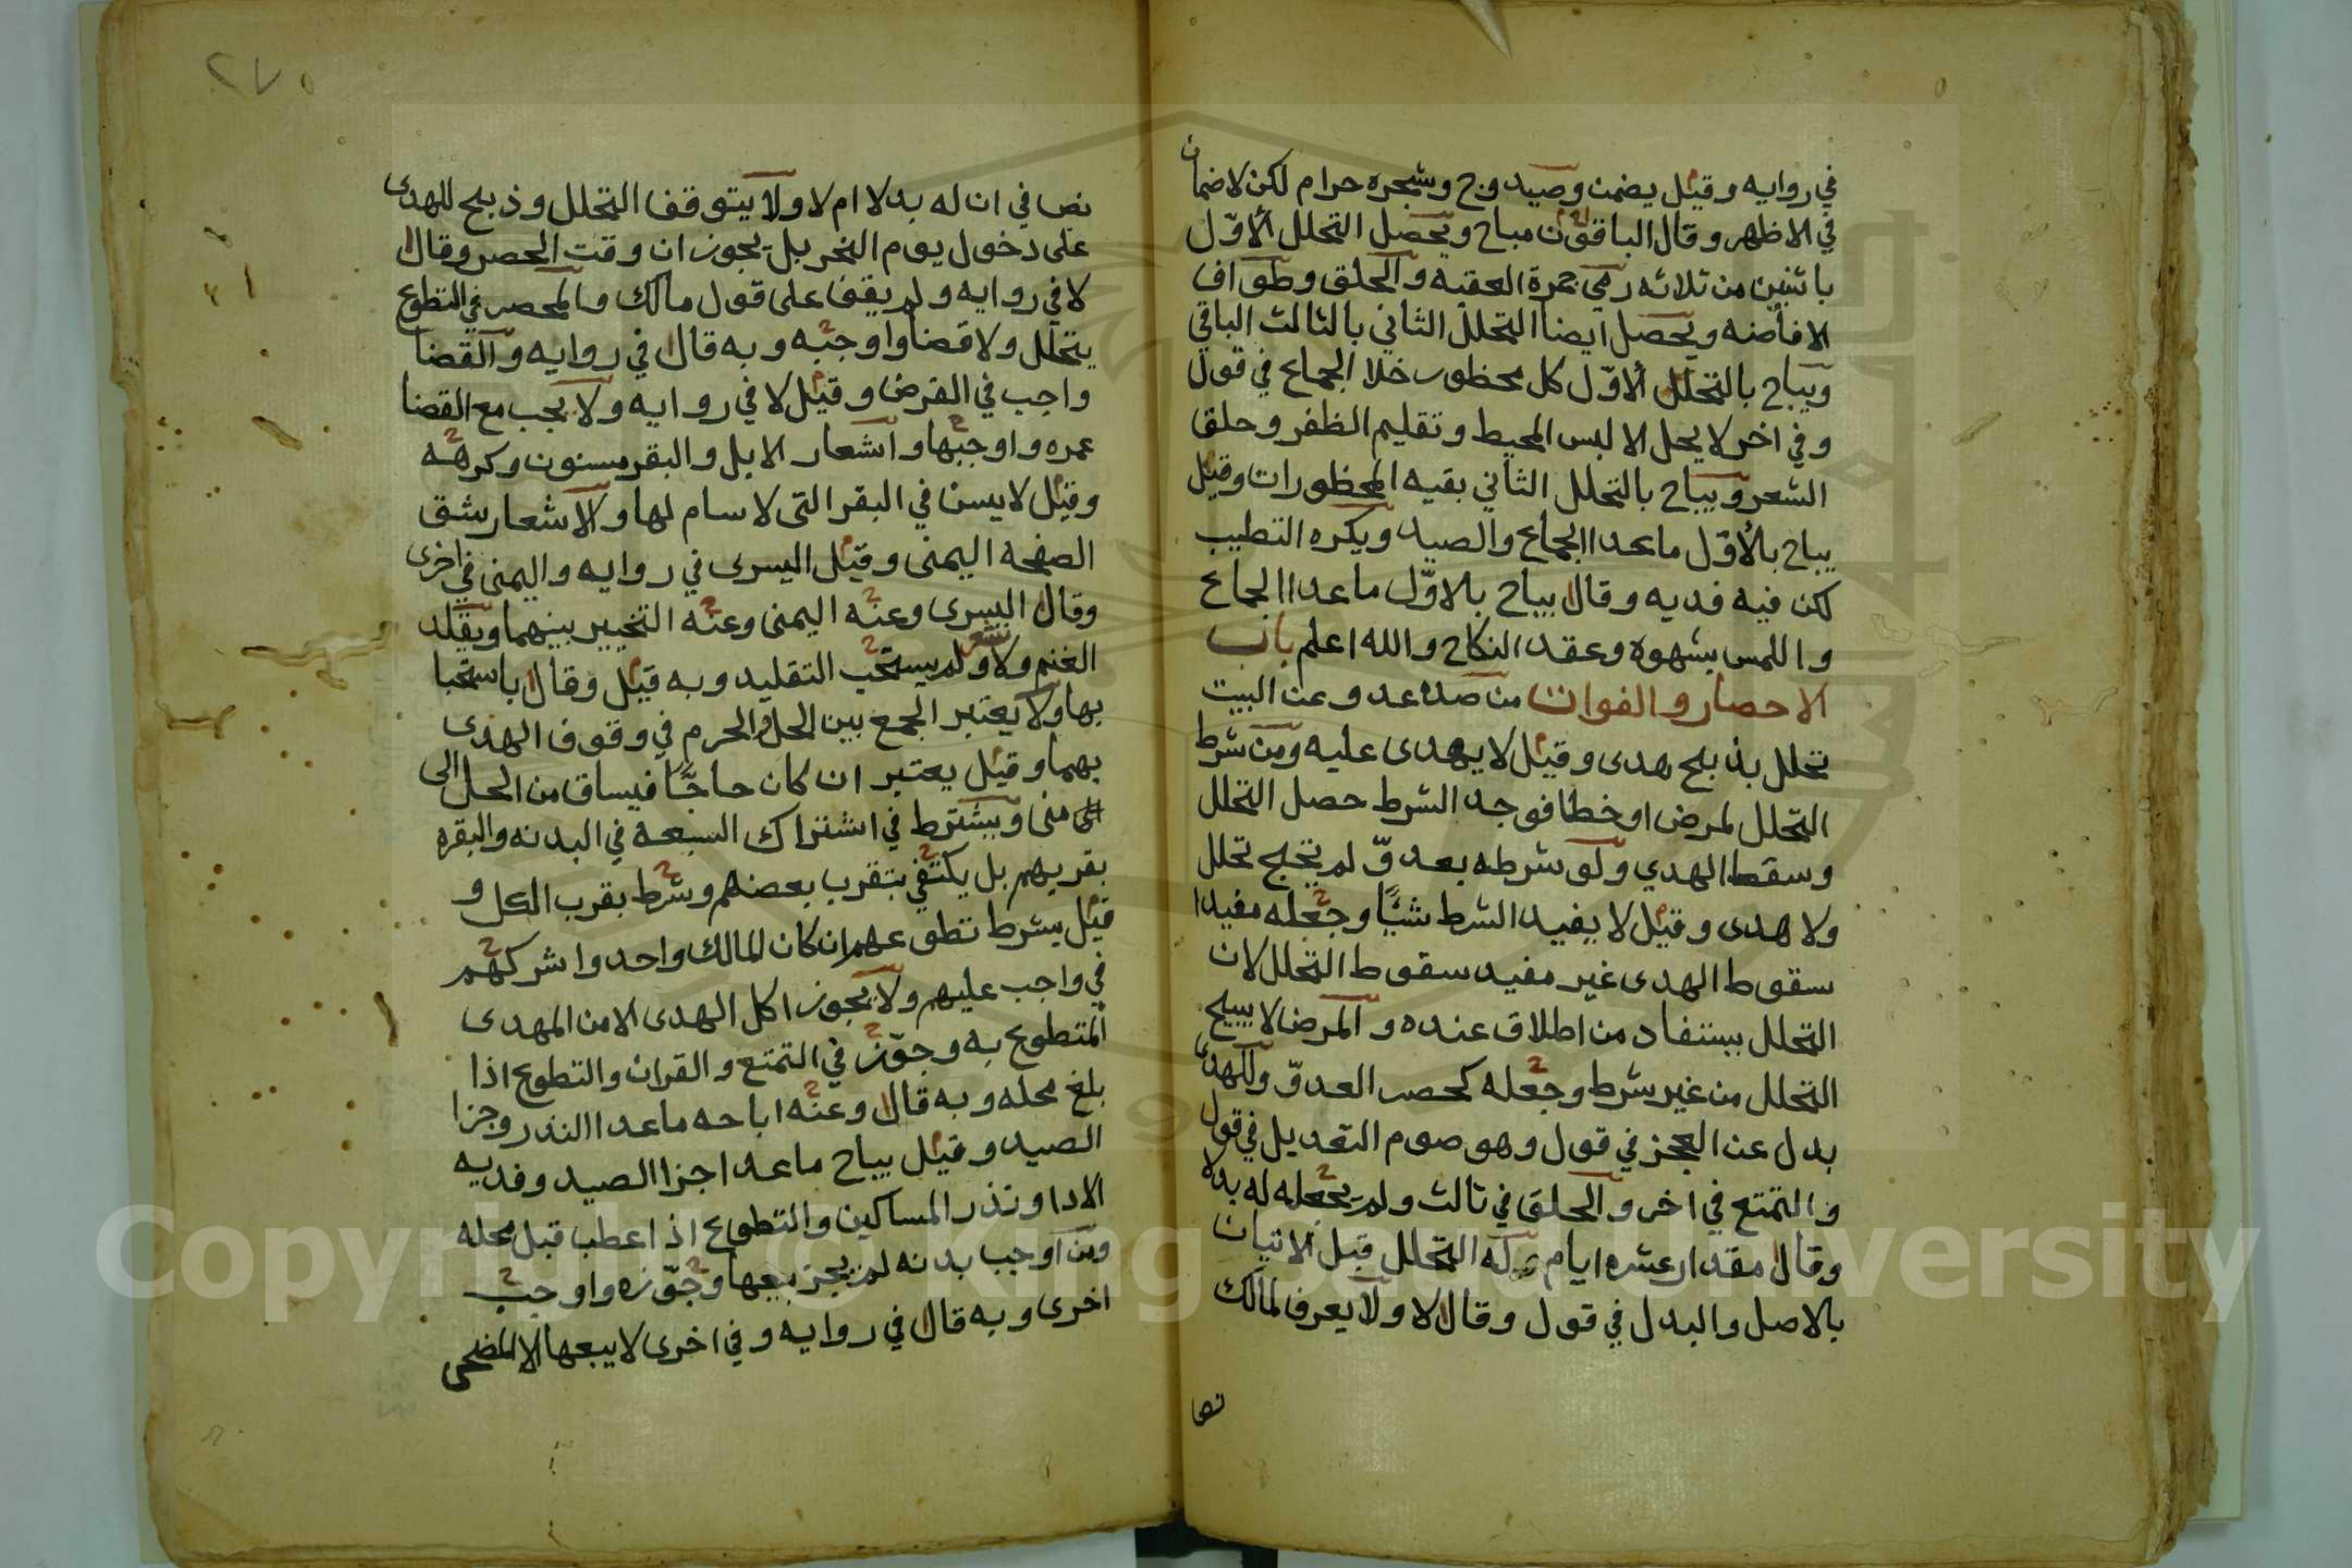 في روايه وقيل يضمن وصيد وج وشجره حرام لكن لا ضمان
في الاظهر وقال الباقون مباح ويحصل التحلل الأوّل
باثنين من ثلاثه رمي جمرة العقبه والحلق وطواف
الافاضه ويحصل ايضا التحلل الثاني بالثالث الباقي
ويباح بالتحلل الأوّل كل محظور خلا الجماع في قول
وفي اخر لا يحل الا لبس المحيط وتقليم الظفر وحلق
الشعر ويباح بالتحلل الثاني بقيه المحظورات وقيل
يباح بالأوّل ما عدا الجماع والصيد ويكره التطيب
لكن فيه فديه وقال يباح بالاوّل ما عدا الجماع
واللمس بشهوه وعقد النكاح والله اعلم باب
الاحصار والفوات من صده عدو عن البيت
تحلل بذبح هدى وقيل لا يهدى عليه ومن شرط
التحلل لمرض او خطا فوجد الشرط حصل التحلل
وسقط الهدي ولو شرطه بعدوّ لم يحتج تحلل
ولا هدى وقيل لا يفيد الشرط شيًا وجعله مفيدا
سقوط الهدى غير مفيد سقوط التحلل لان
التحلل يستفاد من اطلاق عنده والمرض لا يبيح
التحلل من غير شرط وجعله كحصر العدوّ وللهدى
بدل عن العجز في قول وهو صوم التعديل في قول
والتمتع في اخر والحلق في ثالث ولم يجعله له بدلا
وقال مقدار عشره ايام وله التحلل قبل الاتيان
بالاصل والبدل في قول وقال لا ولا يعرف لمالك
نصا
٢٧٥
نصا في ان له بدلا ام لا ولا يتوقف التحلل وذبح للهدى
على دخول يوم النحر بل يجوزان وقت الحصر وقال
لا في روايه ولم يقف على قول مالك والمحصر في التطوع
يتحلل ولا قضا واوجبه وبه قال في روايه والقضا
واجب في الفرض وقيل لا في روايه ولا يجب مع القضا
عمره واوجبها واشعار الابل والبقر مسنون وكرهه
وقيل لا يسن في البقر التى لا سام لها والاشعار شق
الصفحه اليمنى وقيل اليسرى في روايه واليمنى في اخرى
وقال اليسرى وعنه اليمنى وعنه التخيير بينهما ويقلد
الغنم ولا تشعر ولم يستحب التقليد وبه قيل وقال باستحبا
بها ولا يعتبر الجمع بين الحل والحرم في وقوف الهدى
بهما وقيل يعتبر ان كان حاجًا فيساق من الحل الى
منى ويشترط في اشتراك السبعة في البدنه والبقره
بقربهم بل يكتفي بتقرب بعضهم وشرط بقرب الكل و
قيل يشرط تطوعهم ان كان المالك واحد واشركهم
في واجب عليهم ولا يجوز اكل الهدى الا من المهدى
المتطوع به وجوّز في التمتع والقران والتطوع اذا
بلغ محله وبه قال وعنه اباحه ما عدا النذر وجزا
الصيد وقيل يباح ما عدا جزا الصيد وفديه
الادا ونذر المساكين والتطوع اذا عطب قبل محله
ومن اوجب بدنه لم يجز بيعها وجوّزه واوجب
اخرى وبه قال في روايه وفي اخرى لا يبعها الا للمضحى
Copyright © King Saud University